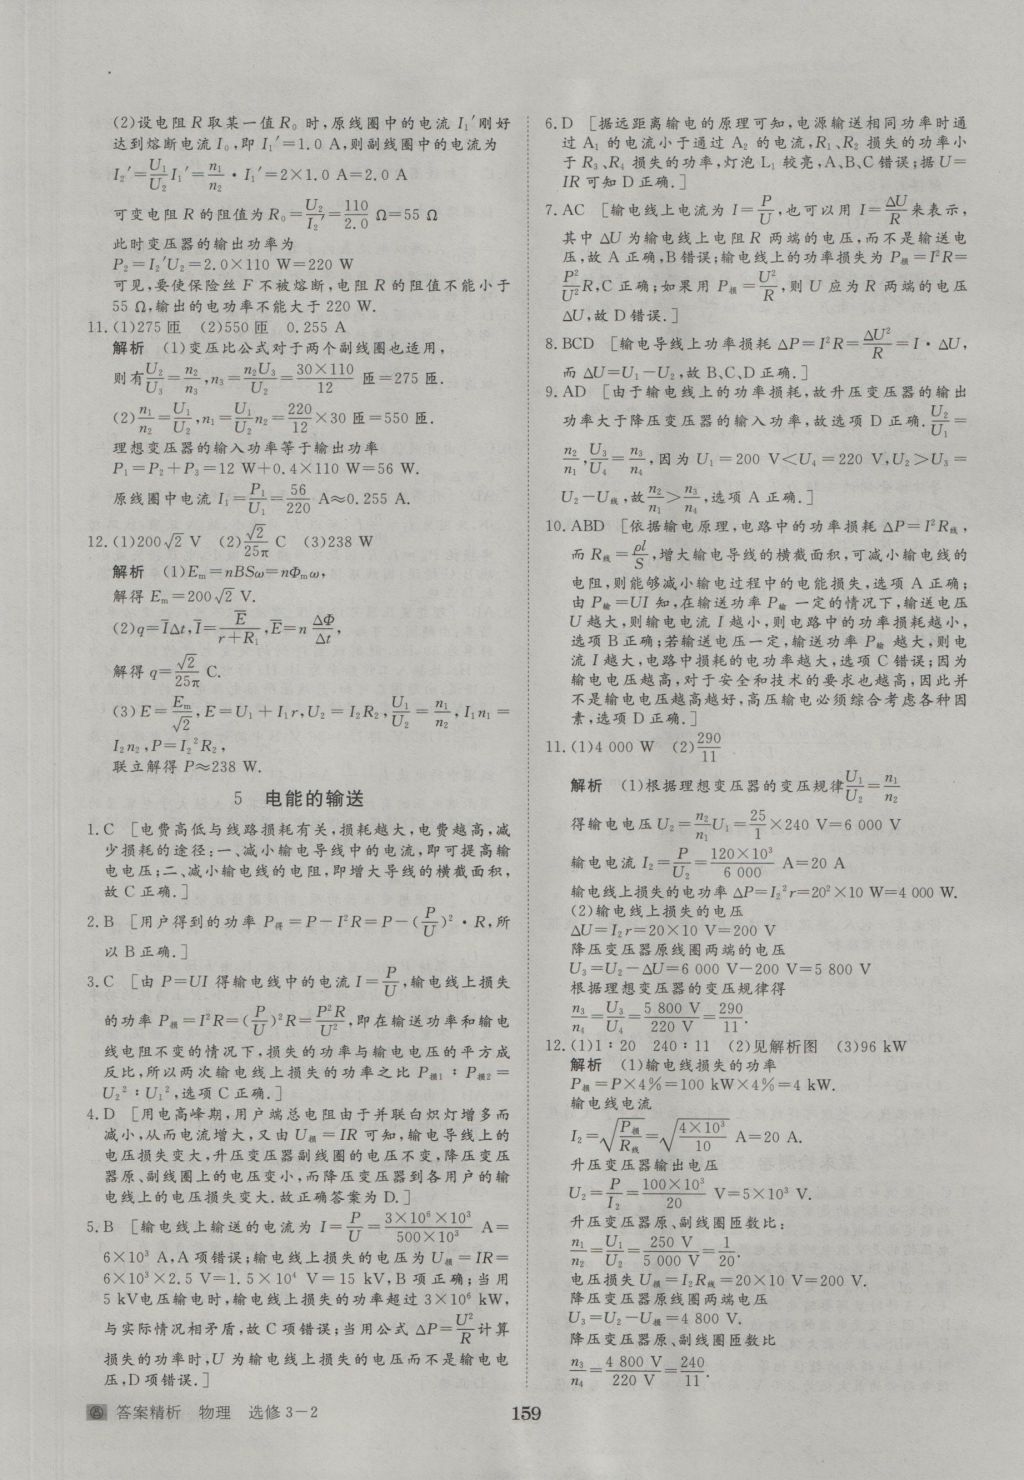 (2)设电阻R取某一值R₀时,原线圈中的电流I₁′刚好
达到熔断电流I₀,即I₁′=1.0 A,则副线圈中的电流为
I₂′=U₁/U₂ I₁′=n₁/n₂·I₁′=2×1.0 A=2.0 A
可变电阻R的阻值为R₀=U₂/I₂′=110/2.0 Ω=55 Ω
此时变压器的输出功率为
P₂=I₂′U₂=2.0×110 W=220 W
可见,要使保险丝F不被熔断,电阻R的阻值不能小于
55 Ω,输出的电功率不能大于220 W.
11.(1)275匝 (2)550匝 0.255 A
解析 (1)变压比公式对于两个副线圈也适用,
则有U₂/U₃=n₂/n₃,n₃=n₂U₃/U₂=30×110/12 匝=275匝.
(2)n₁/n₂=U₁/U₂,n₁=U₁/U₂ n₂=220/12×30匝=550匝.
理想变压器的输入功率等于输出功率
P₁=P₂+P₃=12 W+0.4×110 W=56 W.
原线圈中电流I₁=P₁/U₁=56/220 A≈0.255 A.
12.(1)200√2 V (2)√2/25π C (3)238 W
解析 (1)Eₘ=nBSω=nΦₘω,
解得Eₘ=200√2 V.
(2)q=I̅Δt,I̅=E̅/(r+R₁),E̅=n ΔΦ/Δt,
解得q=√2/25π C.
(3)E=Eₘ/√2,E=U₁+I₁r,U₂=I₂R₂,U₁/U₂=n₁/n₂,I₁n₁=
I₂n₂,P=I₂²R₂,
联立解得P≈238 W.
5 电能的输送
1.C [电费高低与线路损耗有关,损耗越大,电费越高,减
少损耗的途径:一、减小输电导线中的电流,即可提高输
电电压;二、减小输电线的电阻,即增大导线的横截面积,
故C正确.]
2.B [用户得到的功率P得=P-I²R=P-(P/U)²·R,所
以B正确.]
3.C [由P=UI得输电线中的电流I=P/U,输电线上损失
的功率P损=I²R=(P/U)²R=P²R/U²,即在输送功率和输电
线电阻不变的情况下,损失的功率与输电电压的平方成
反比,所以两次输电线上损失的功率之比P损1∶P损2=
U₂²∶U₁²,选项C正确.]
4.D [用电高峰期,用户端总电阻由于并联白炽灯增多而
减小,从而电流增大,又由U损=IR可知,输电导线上的
电压损失变大,升压变压器副线圈的电压不变,降压变压
器原、副线圈上的电压变小,而降压变压器到各用户的输
电线上的电压损失变大.故正确答案为D.]
5.B [输电线上输送的电流为I=P/U=3×10⁶×10³/500×10³ A=
6×10³ A,A项错误;输电线上损失的电压为U损=IR=
6×10³×2.5 V=1.5×10⁴ V=15 kV,B项正确;当用
5 kV电压输电时,输电线上损失的功率超过3×10⁶ kW,
与实际情况相矛盾,故C项错误;当用公式ΔP=U²/R计算
损失的功率时,U为输电线上损失的电压而不是输电电
压,D项错误.]
6.D [据远距离输电的原理可知,电源输送相同功率时通
过A₁的电流小于通过A₂的电流,R₁、R₂损失的功率小
于R₃、R₄损失的功率,灯泡L₁较亮,A、B、C错误;据U=
IR可知D正确.]
7.AC [输电线上电流为I=P/U,也可以用I=ΔU/R来表示,
其中ΔU为输电线上电阻R两端的电压,而不是输送电
压,故A正确,B错误;输电线上的功率损失为P损=I²R=
P²/U²R,C正确;如果用P损=U²/R,则U应为R两端的电压
ΔU,故D错误.]
8.BCD [输电导线上功率损耗ΔP=I²R=ΔU²/R=I·ΔU,
而ΔU=U₁-U₂,故B、C、D正确.]
9.AD [由于输电线上的功率损耗,故升压变压器的输出
功率大于降压变压器的输入功率,故选项D正确.U₂/U₁=
n₂/n₁,U₃/U₄=n₃/n₄,因为U₁=200 V<U₄=220 V,U₂>U₃=
U₂-U线,故n₂/n₁>n₃/n₄,选项A正确.]
10.ABD [依据输电原理,电路中的功率损耗ΔP=I²R线,
而R线=ρl/S,增大输电导线的横截面积,可减小输电线的
电阻,则能够减小输电过程中的电能损失,选项A正确;
由P输=UI知,在输送功率P输一定的情况下,输送电压
U越大,则输电电流I越小,则电路中的功率损耗越小,
选项B正确;若输送电压一定,输送功率P输越大,则电
流I越大,电路中损耗的电功率越大,选项C错误;因为
输电电压越高,对于安全和技术的要求也越高,因此并
不是输电电压越高越好,高压输电必须综合考虑各种因
素,选项D正确.]
11.(1)4 000 W (2)290/11
解析 (1)根据理想变压器的变压规律U₁/U₂=n₁/n₂
得输电电压U₂=n₂/n₁ U₁=25/1×240 V=6 000 V
输电电流I₂=P/U₂=120×10³/6 000 A=20 A
输电线上损失的电功率ΔP=I₂²r=20²×10 W=4 000 W.
(2)输电线上损失的电压
ΔU=I₂r=20×10 V=200 V
降压变压器原线圈两端的电压
U₃=U₂-ΔU=6 000 V-200 V=5 800 V
根据理想变压器的变压规律得
n₃/n₄=U₃/U₄=5 800 V/220 V=290/11.
12.(1)1∶20 240∶11 (2)见解析图 (3)96 kW
解析 (1)输电线损失的功率
P损=P×4%=100 kW×4%=4 kW.
输电线电流
I₂=√(P损/R线)=√(4×10³/10) A=20 A.
升压变压器输出电压
U₂=P/I₂=100×10³/20 V=5×10³ V.
升压变压器原、副线圈匝数比:
n₁/n₂=U₁/U₂=250 V/5 000 V=1/20.
电压损失U损=I₂R线=20×10 V=200 V.
降压变压器原线圈两端电压
U₃=U₂-U损=4 800 V.
降压变压器原、副线圈匝数比
n₃/n₄=4 800 V/220 V=240/11.
答案精析 物理 选修3-2
159